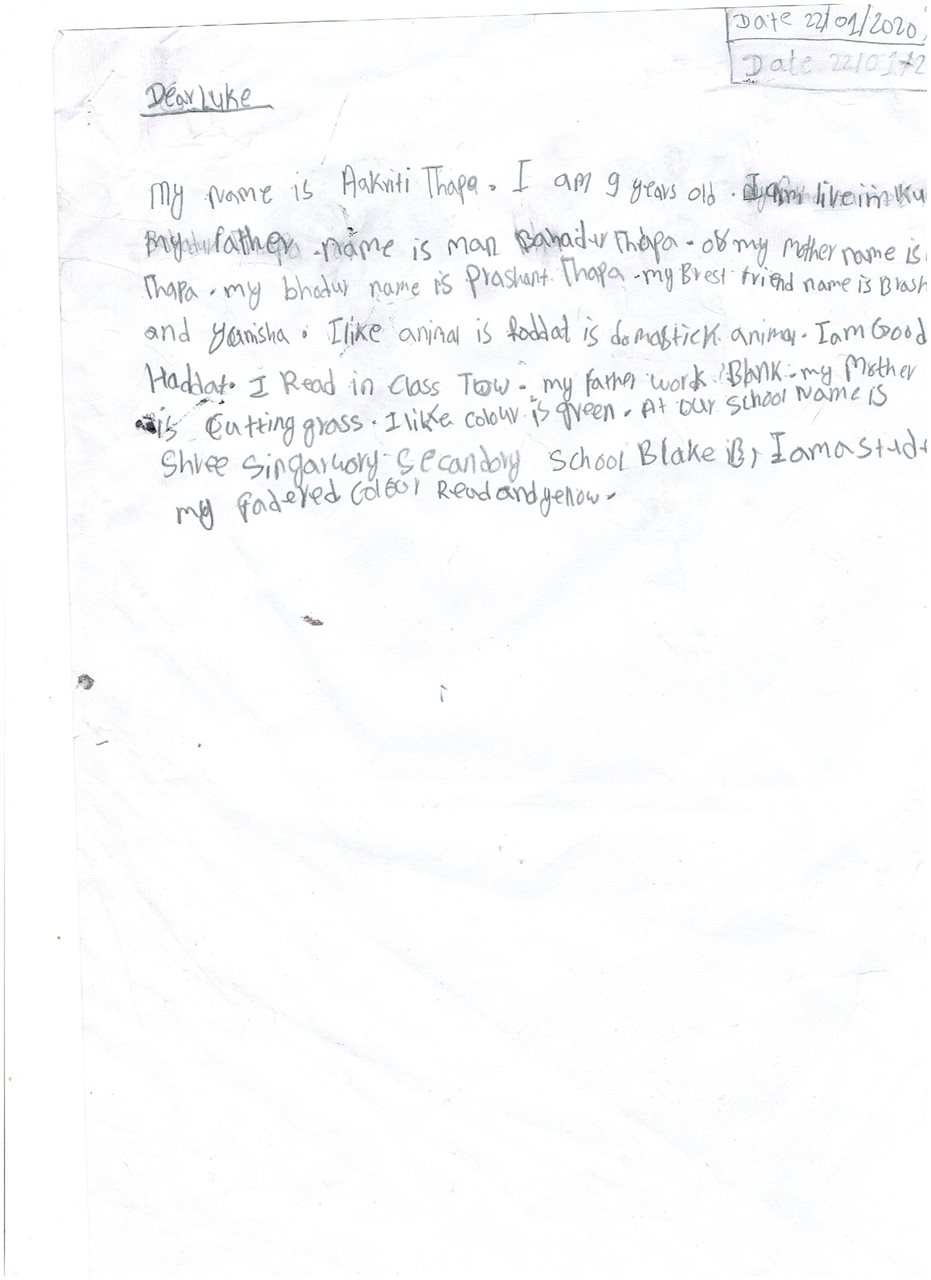 Date 22/01/2020
Date 22/01
Dear Luke
My name is Aakriti Thapa. I am 9 years old. I am live in Ku
my father name is man Bahadur Thapa. of my Mother name is
Thapa. my bhadur name is Prashant Thapa. my Brest friend name is Brash
and yamisha. I like animal is faddat is domastick animal. I am Good
Haddat. I Read in Class Tow. my father work Blank. my Mother
is Cutting grass. I like colour is green. At our school Name is
Shree Singarwory Secandory School Blake is, I am a stude
my fadered Colour Read and yellow.